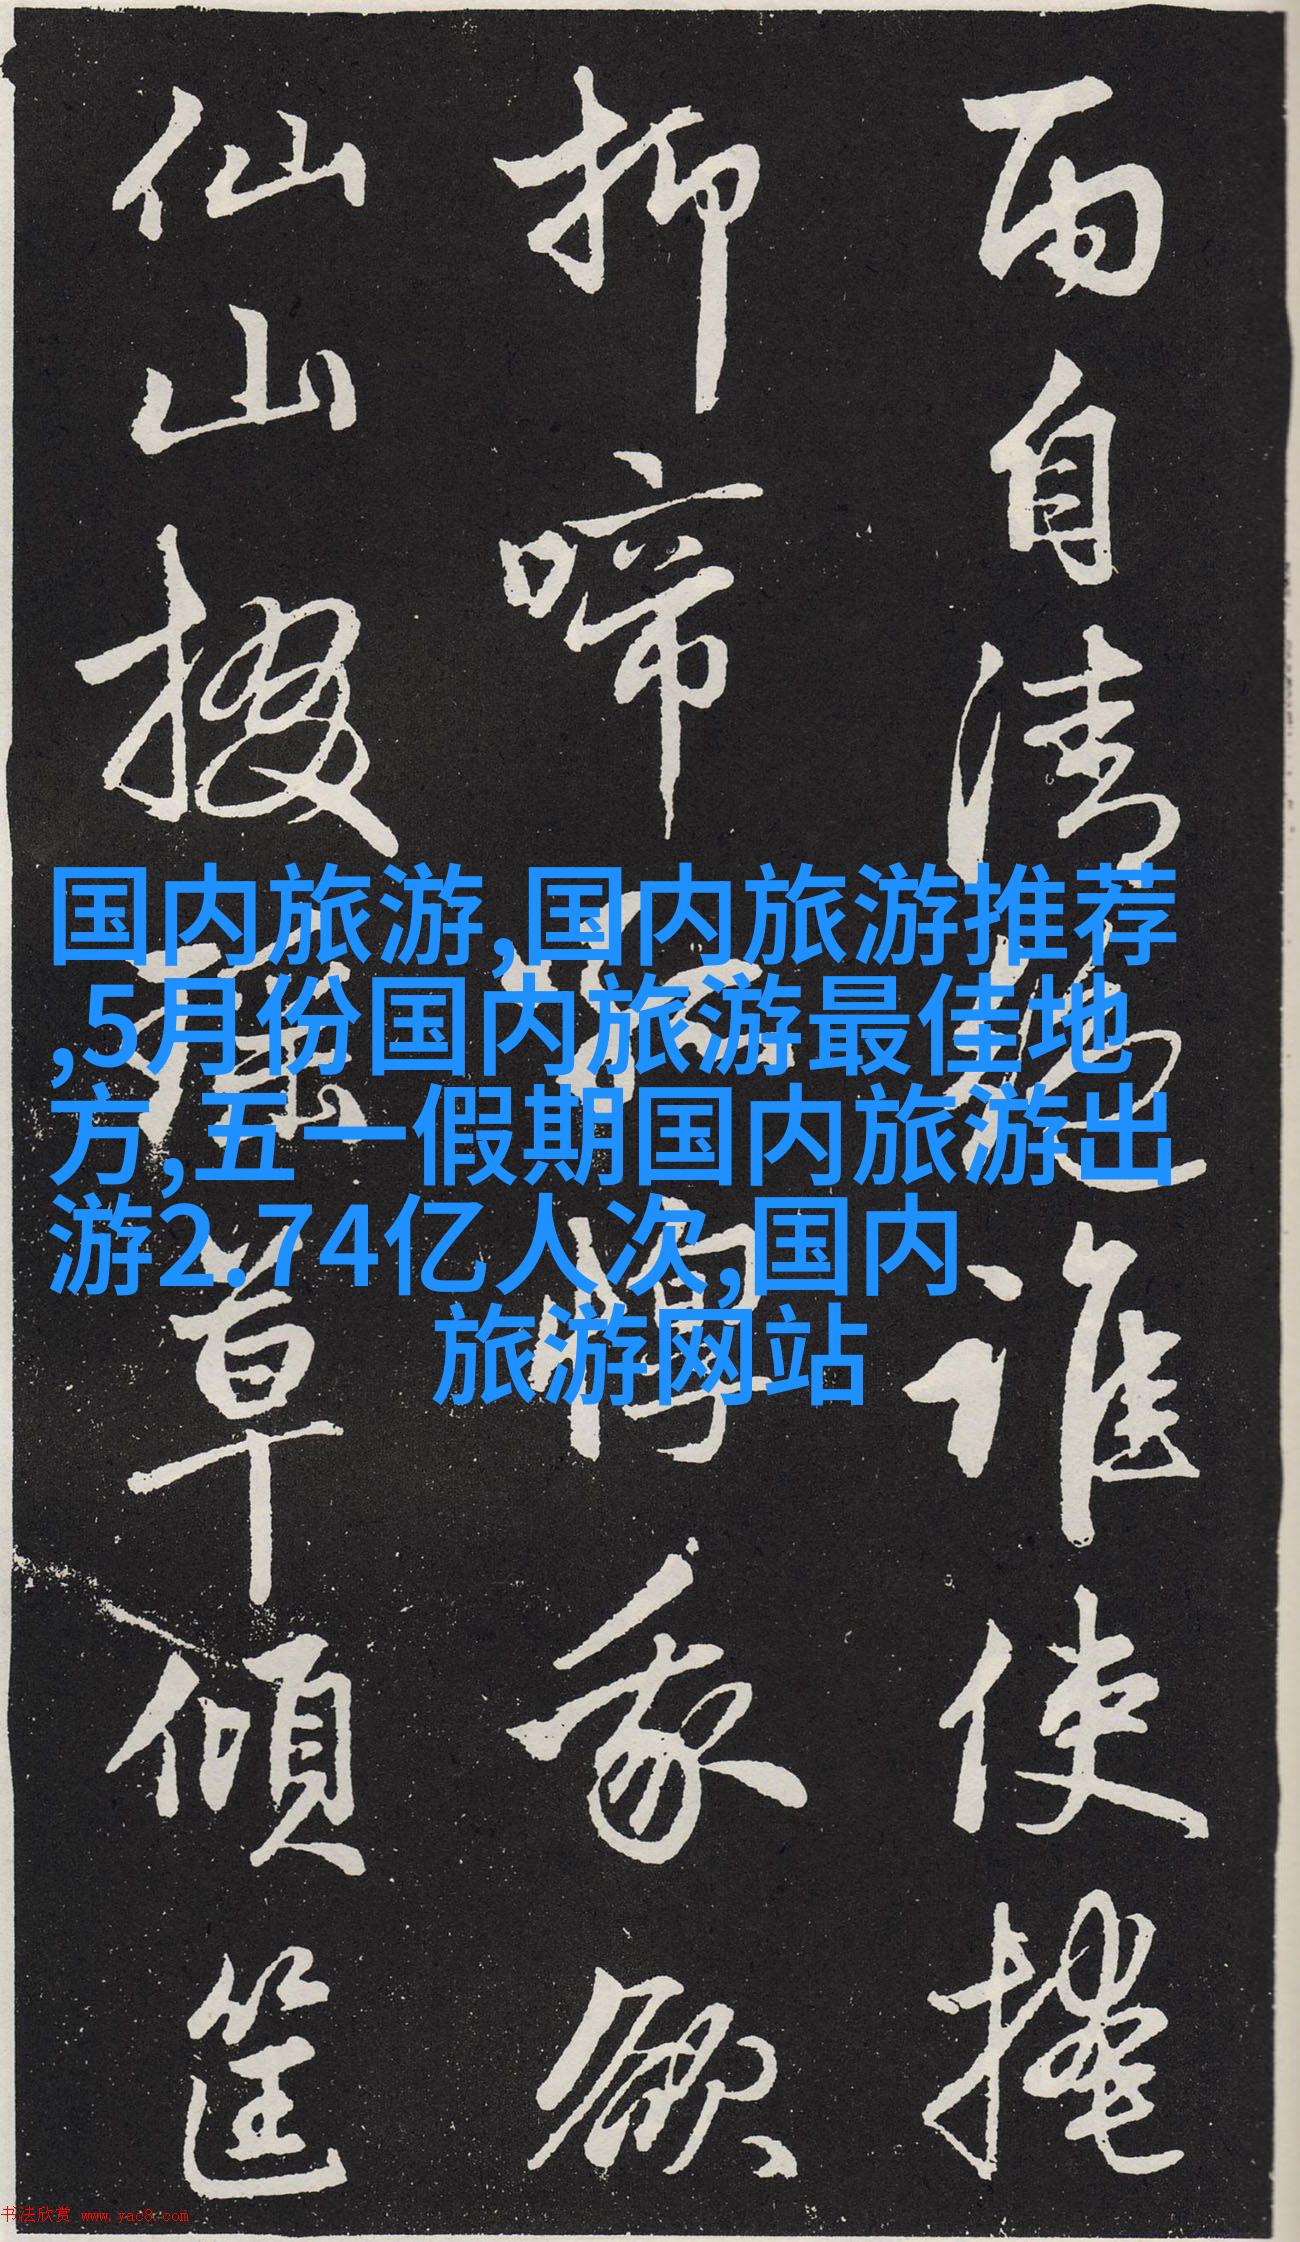 而自清誰使掩
抑啼欲
仙山掇瑤草傾筐
国内旅游,国内旅游推荐
,5月份国内旅游最佳地
方,五一假期国内旅游出
游2.74亿人次,国内
旅游网站
书法欣赏 www.yac8.com